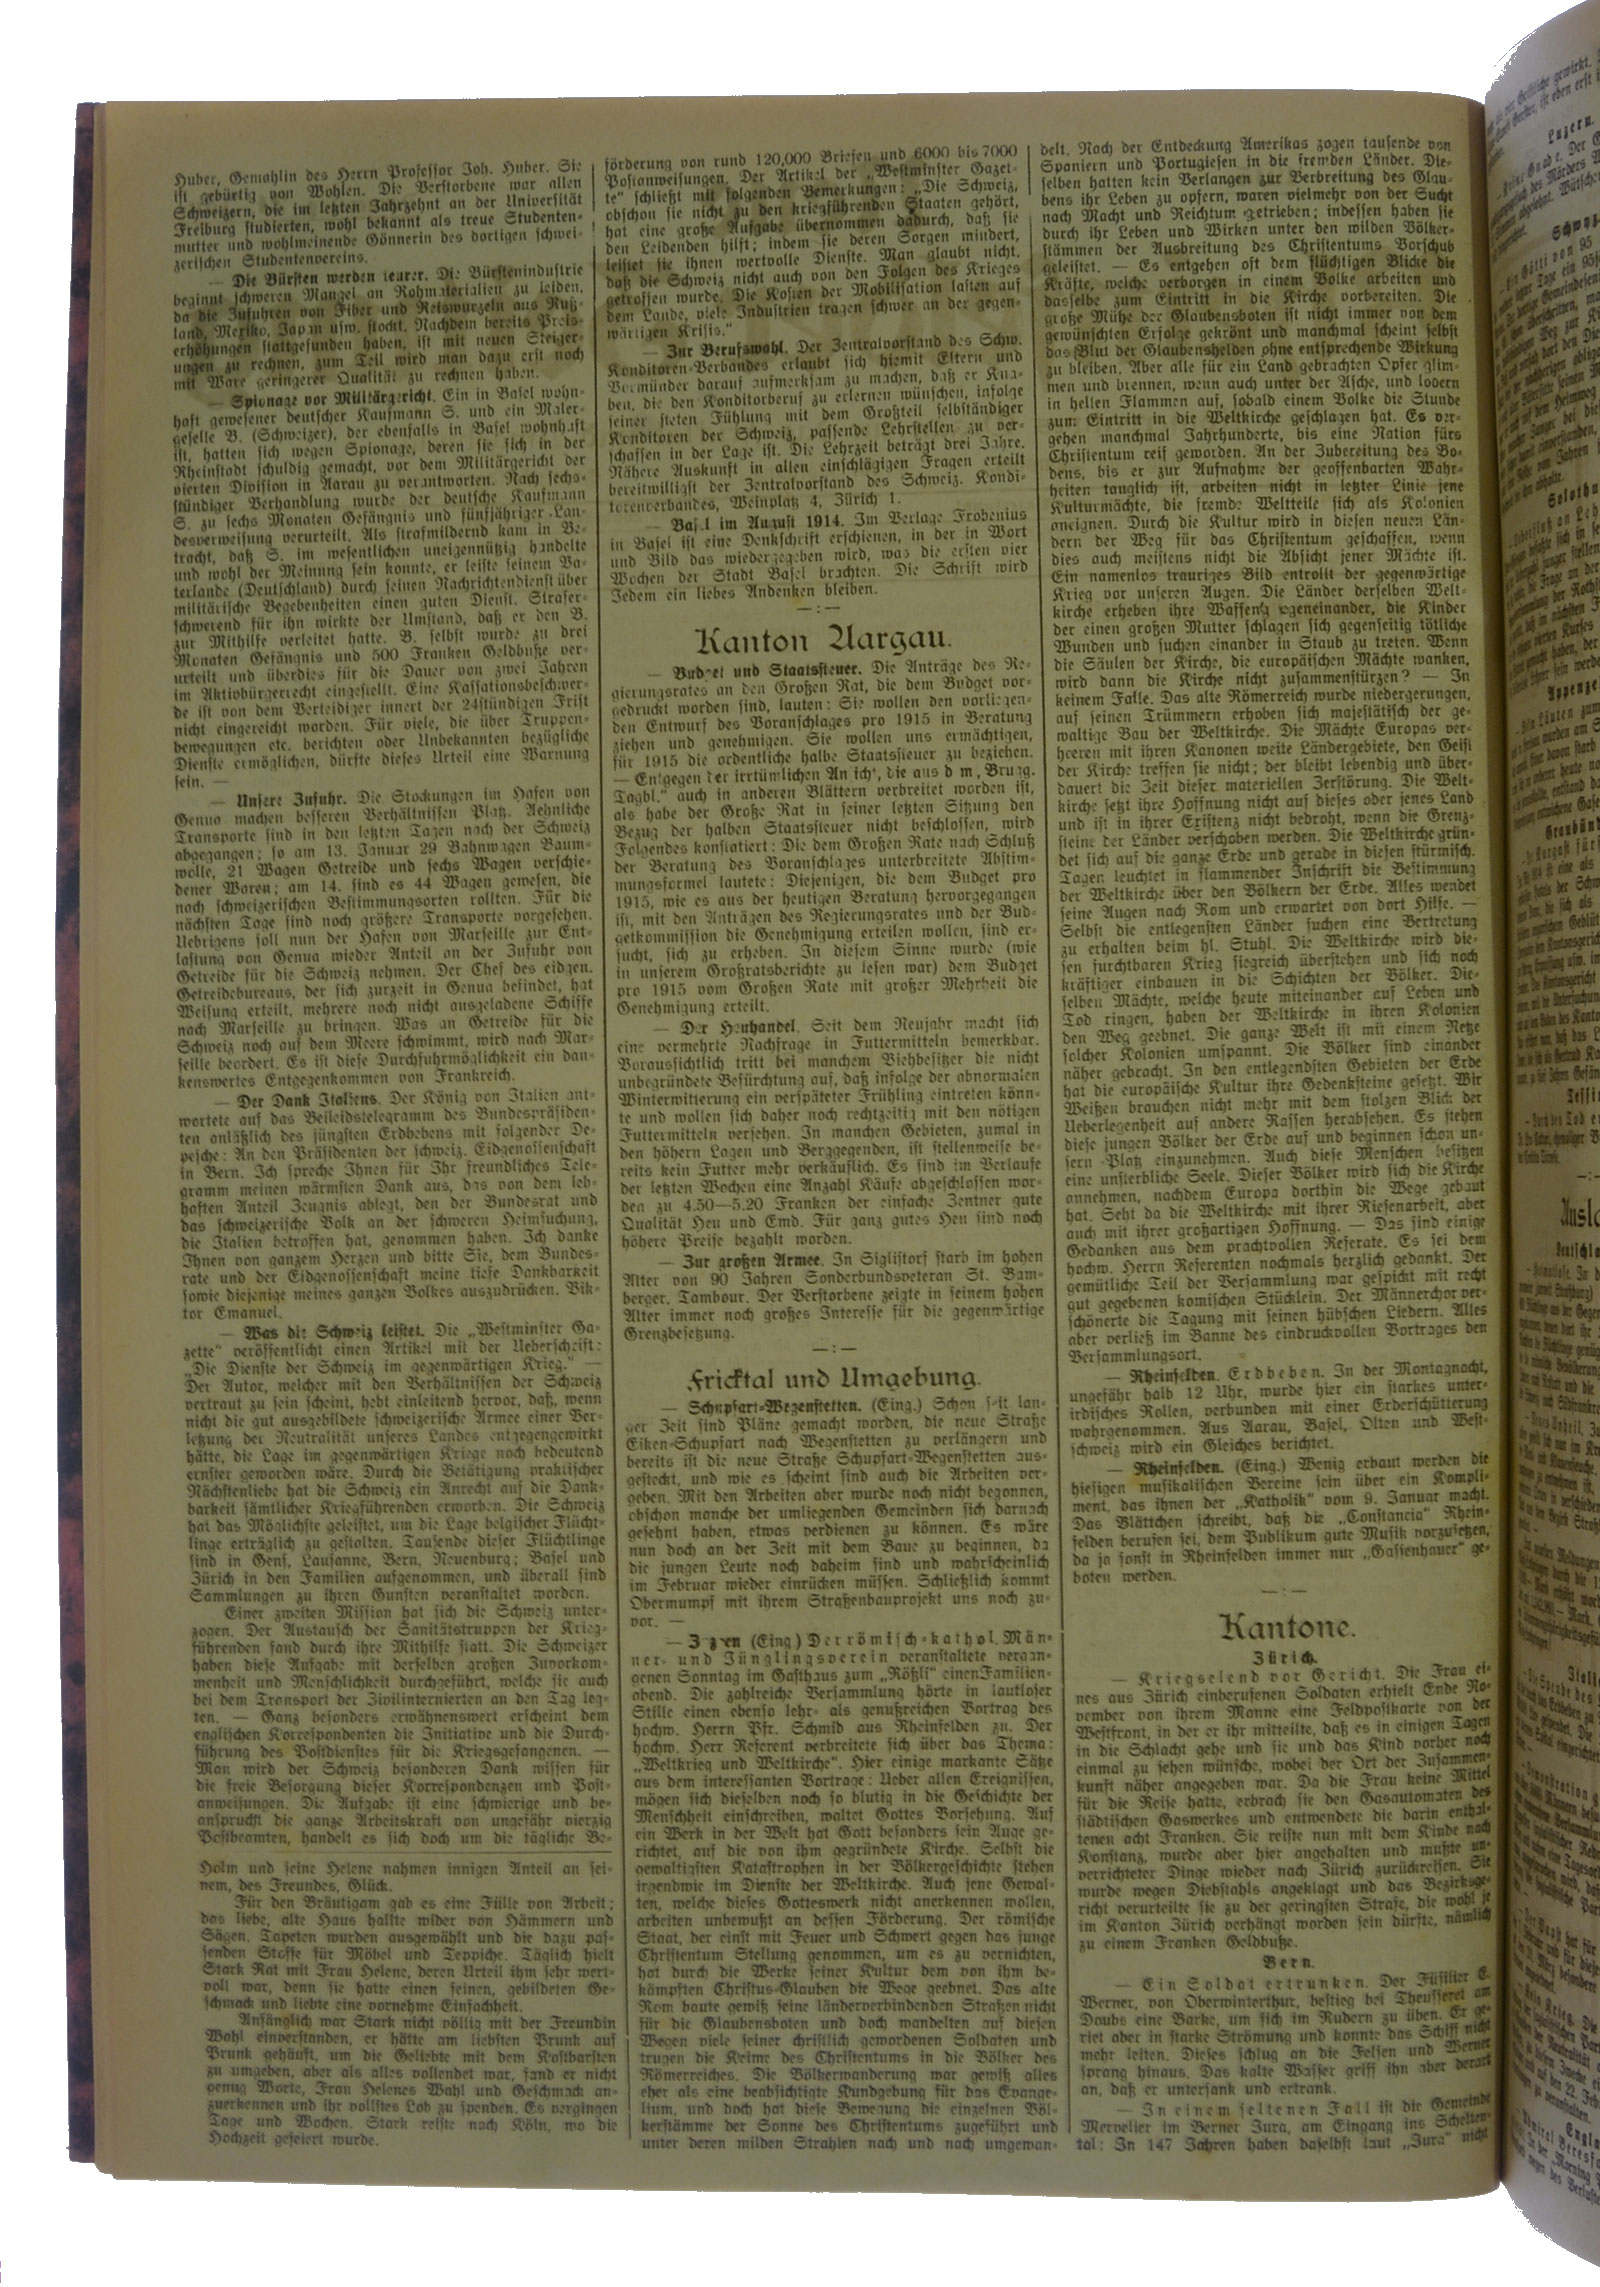 Huber, Gemahlin des Herrn Professor Joh. Huber. Sie
ist gebürtig von Wohlen. Die Verstorbene war allen
Schweizern, die im letzten Jahrzehnt an der Universität
Freiburg studierten, wohl bekannt als treue Studenten-
mutter und wohlmeinende Gönnerin des dortigen schwei-
zerischen Studentenvereins.
— Die Bürsten werden teurer. Die Bürstenindustrie
beginnt schweren Mangel an Rohmaterialien zu leiden,
da die Zufuhren von Fiber und Reiswurzeln aus Ruß-
land, Mexiko, Japan usw. stockt. Nachdem bereits Preis-
erhöhungen stattgefunden haben, ist mit neuen Steiger-
ungen zu rechnen, zum Teil wird man dazu erst noch
mit Ware geringerer Qualität zu rechnen haben.
— Spionage vor Militärgericht. Ein in Basel wohn-
haft gewesener deutscher Kaufmann S. und ein Maler-
geselle B. (Schweizer), der ebenfalls in Basel wohnhaft
ist, hatten sich wegen Spionage, deren sie sich in der
Rheinstadt schuldig gemacht, vor dem Militärgericht der
vierten Division in Aarau zu verantworten. Nach sechs-
stündiger Verhandlung wurde der deutsche Kaufmann
S. zu sechs Monaten Gefängnis und fünfjähriger Lan-
desverweisung verurteilt. Als strafmildernd kam in Be-
tracht, daß S. im wesentlichen uneigennützig handelte
und wohl der Meinung sein konnte, er leiste seinem Va-
terlande (Deutschland) durch seinen Nachrichtendienst über
militärische Begebenheiten einen guten Dienst. Strafer-
schwerend für ihn wirkte der Umstand, daß er den B.
zur Mithilfe verleitet hatte. B. selbst wurde zu drei
Monaten Gefängnis und 500 Franken Geldbuße ver-
urteilt und überdies für die Dauer von zwei Jahren
im Aktivbürgerrecht eingestellt. Eine Kassationsbeschwer-
de ist von dem Verteidiger innert der 24stündigen Frist
nicht eingereicht worden. Für viele, die über Truppen-
bewegungen etc. berichten oder Unbekannten bezügliche
Dienste ermöglichen, dürfte dieses Urteil eine Warnung
sein. —
— Unsere Zufuhr. Die Stockungen im Hafen von
Genua machen besseren Verhältnissen Platz. Aehnliche
Transporte sind in den letzten Tagen nach der Schweiz
abgegangen; so am 13. Januar 29 Bahnwagen Baum-
wolle, 21 Wagen Getreide und sechs Wagen verschie-
dener Waren; am 14. sind es 44 Wagen gewesen, die
nach schweizerischen Bestimmungsorten rollten. Für die
nächsten Tage sind noch größere Transporte vorgesehen.
Uebrigens soll nun der Hafen von Marseille zur Ent-
lastung von Genua wieder Anteil an der Zufuhr von
Getreide für die Schweiz nehmen. Der Chef des eidgen.
Getreidebureaus, der sich zurzeit in Genua befindet, hat
Weisung erteilt, mehrere noch nicht ausgeladene Schiffe
nach Marseille zu bringen. Was an Getreide für die
Schweiz noch auf dem Meere schwimmt, wird nach Mar-
seille beordert. Es ist diese Durchfuhrmöglichkeit ein dan-
kenswertes Entgegenkommen von Frankreich.
— Der Dank Italiens. Der König von Italien ant-
wortete auf das Beileidstelegramm des Bundespräsiden-
ten anläßlich des jüngsten Erdbebens mit folgender De-
pesche: An den Präsidenten der schweiz. Eidgenossenschaft
in Bern. Ich spreche Ihnen für Ihr freundliches Tele-
gramm meinen wärmsten Dank aus, das von dem leb-
haften Anteil Zeugnis ablegt, den der Bundesrat und
das schweizerische Volk an der schweren Heimsuchung,
die Italien betroffen hat, genommen haben. Ich danke
Ihnen von ganzem Herzen und bitte Sie, dem Bundes-
rate und der Eidgenossenschaft meine tiefe Dankbarkeit
sowie diejenige meines ganzen Volkes auszudrücken. Vik-
tor Emanuel.
— Was die Schweiz leistet. Die „Westminster Ga-
zette“ veröffentlicht einen Artikel mit der Ueberschrift:
„Die Dienste der Schweiz im gegenwärtigen Krieg.“ —
Der Autor, welcher mit den Verhältnissen der Schweiz
vertraut zu sein scheint, hebt einleitend hervor, daß, wenn
nicht die gut ausgebildete schweizerische Armee einer Ver-
letzung der Neutralität unseres Landes entgegengewirkt
hätte, die Lage im gegenwärtigen Kriege noch bedeutend
ernster geworden wäre. Durch die Betätigung praktischer
Nächstenliebe hat die Schweiz ein Anrecht auf die Dank-
barkeit sämtlicher Kriegführenden erworben. Die Schweiz
hat das Möglichste geleistet, um die Lage belgischer Flücht-
linge erträglich zu gestalten. Tausende dieser Flüchtlinge
sind in Genf, Lausanne, Bern, Neuenburg; Basel und
Zürich in den Familien aufgenommen, und überall sind
Sammlungen zu ihren Gunsten veranstaltet worden.
Einer zweiten Mission hat sich die Schweiz unter-
zogen. Der Austausch der Sanitätstruppen der Krieg-
führenden fand durch ihre Mithilfe statt. Die Schweizer
haben diese Aufgabe mit derselben großen Zuvorkom-
menheit und Menschlichkeit durchgeführt, welche sie auch
bei dem Transport der Zivilinternierten an den Tag leg-
ten. — Ganz besonders erwähnenswert erscheint dem
englischen Korrespondenten die Initiative und die Durch-
führung des Postdienstes für die Kriegsgefangenen. —
Man wird der Schweiz besonderen Dank wissen für
die freie Besorgung dieser Korrespondenzen und Post-
anweisungen. Die Aufgabe ist eine schwierige und be-
ansprucht die ganze Arbeitskraft von ungefähr vierzig
Postbeamten, handelt es sich doch um die tägliche Be-
Holm und seine Helene nahmen innigen Anteil an sei-
nem, des Freundes, Glück.
Für den Bräutigam gab es eine Fülle von Arbeit;
das liebe, alte Haus hallte wider von Hämmern und
Sägen, Tapeten wurden ausgewählt und die dazu pas-
senden Stoffe für Möbel und Teppiche. Täglich hielt
Stark Rat mit Frau Helene, deren Urteil ihm sehr wert-
voll war, denn sie hatte einen feinen, gebildeten Ge-
schmack und liebte eine vornehme Einfachheit.
Anfänglich war Stark nicht völlig mit der Freundin
Wahl einverstanden, er hätte am liebsten Prunk auf
Prunk gehäuft, um die Geliebte mit dem Kostbarsten
zu umgeben, aber als alles vollendet war, fand er nicht
genug Worte, Frau Helenes Wahl und Geschmack an-
zuerkennen und ihr vollstes Lob zu spenden. Es vergingen
Tage und Wochen. Stark reiste nach Köln, wo die
Hochzeit gefeiert wurde.
förderung von rund 120,000 Briefen und 6000 bis 7000
Postanweisungen. Der Artikel der „Westminster Gazet-
te“ schließt mit folgenden Bemerkungen: „Die Schweiz,
obschon sie nicht zu den kriegführenden Staaten gehört,
hat eine große Aufgabe übernommen dadurch, daß sie
den Leidenden hilft; indem sie deren Sorgen mindert,
leistet sie ihnen wertvolle Dienste. Man glaubt nicht,
daß die Schweiz nicht auch von den Folgen des Krieges
getroffen wurde. Die Kosten der Mobilisation lasten auf
dem Lande, viele Industrien tragen schwer an der gegen-
wärtigen Krisis.“
— Zur Berufswahl. Der Zentralvorstand des Schw.
Konditoren-Verbandes erlaubt sich hiemit Eltern und
Vormünder darauf aufmerksam zu machen, daß er Kna-
ben, die den Konditorberuf zu erlernen wünschen, infolge
seiner steten Fühlung mit dem Großteil selbständiger
Konditoren der Schweiz, passende Lehrstellen zu ver-
schaffen in der Lage ist. Die Lehrzeit beträgt drei Jahre.
Nähere Auskunft in allen einschlägigen Fragen erteilt
bereitwilligst der Zentralvorstand des Schweiz. Kondi-
torenverbandes, Weinplatz 4, Zürich 1.
— Basel im August 1914. Im Verlage Frobenius
in Basel ist eine Denkschrift erschienen, in der in Wort
und Bild das wiedergegeben wird, was die ersten vier
Wochen der Stadt Basel brachten. Die Schrift wird
Jedem ein liebes Andenken bleiben.
—:—
Kanton Aargau.
— Budget und Staatssteuer. Die Anträge des Re-
gierungsrates an den Großen Rat, die dem Budget vor-
gedruckt worden sind, lauten: Sie wollen den vorliegen-
den Entwurf des Voranschlages pro 1915 in Beratung
ziehen und genehmigen. Sie wollen uns ermächtigen,
für 1915 die ordentliche halbe Staatssteuer zu beziehen.
— Entgegen der irrtümlichen Ansicht, die aus dem „Brugg.
Tagbl.“ auch in anderen Blättern verbreitet worden ist,
als habe der Große Rat in seiner letzten Sitzung den
Bezug der halben Staatssteuer nicht beschlossen, wird
Folgendes konstatiert: Die dem Großen Rate nach Schluß
der Beratung des Voranschlages unterbreitete Abstim-
mungsformel lautete: Diejenigen, die dem Budget pro
1915, wie es aus der heutigen Beratung hervorgegangen
ist, mit den Anträgen des Regierungsrates und der Bud-
getkommission die Genehmigung erteilen wollen, sind er-
sucht, sich zu erheben. In diesem Sinne wurde (wie
in unserem Großratsberichte zu lesen war) dem Budget
pro 1915 vom Großen Rate mit großer Mehrheit die
Genehmigung erteilt.
— Der Heuhandel. Seit dem Neujahr macht sich
eine vermehrte Nachfrage in Futtermitteln bemerkbar.
Voraussichtlich tritt bei manchem Viehbesitzer die nicht
unbegründete Befürchtung auf, daß infolge der abnormalen
Winterwitterung ein verspäteter Frühling eintreten könn-
te und wollen sich daher noch rechtzeitig mit den nötigen
Futtermitteln versehen. In manchen Gebieten, zumal in
den höhern Lagen und Berggegenden, ist stellenweise be-
reits kein Futter mehr verkäuflich. Es sind im Verlaufe
der letzten Wochen eine Anzahl Käufe abgeschlossen wor-
den zu 4.50—5.20 Franken der einfache Zentner gute
Qualität Heu und Emd. Für ganz gutes Heu sind noch
höhere Preise bezahlt worden.
— Zur großen Armee. In Siglistorf starb im hohen
Alter von 90 Jahren Sonderbundsveteran St. Bam-
berger, Tambour. Der Verstorbene zeigte in seinem hohen
Alter immer noch großes Interesse für die gegenwärtige
Grenzbesetzung.
—:—
Fricktal und Umgebung.
— Schupfart-Wegenstetten. (Eing.) Schon seit lan-
ger Zeit sind Pläne gemacht worden, die neue Straße
Eiken-Schupfart nach Wegenstetten zu verlängern und
bereits ist die neue Straße Schupfart-Wegenstetten aus-
gesteckt, und wie es scheint sind auch die Arbeiten ver-
geben. Mit den Arbeiten aber wurde noch nicht begonnen,
obschon manche der umliegenden Gemeinden sich darnach
gesehnt haben, etwas verdienen zu können. Es wäre
nun doch an der Zeit mit dem Baue zu beginnen, da
die jungen Leute noch daheim sind und wahrscheinlich
im Februar wieder einrücken müssen. Schließlich kommt
Obermumpf mit ihrem Straßenbauprojekt uns noch zu-
vor. —
— (Eing.) Der römisch-kathol. Män-
ner- und Jünglingsverein veranstaltete vergan-
genen Sonntag im Gasthaus zum „Rößli“ einen Familien-
abend. Die zahlreiche Versammlung hörte in lautloser
Stille einen ebenso lehr- als genußreichen Vortrag des
hochw. Herrn Pfr. Schmid aus Rheinfelden zu. Der
hochw. Herr Referent verbreitete sich über das Thema:
„Weltkrieg und Weltkirche“. Hier einige markante Sätze
aus dem interessanten Vortrage: Ueber allen Ereignissen,
mögen sich dieselben noch so blutig in die Geschichte der
Menschheit einschreiben, waltet Gottes Vorsehung. Auf
ein Werk in der Welt hat Gott besonders sein Auge ge-
richtet, auf die von ihm gegründete Kirche. Selbst die
gewaltigsten Katastrophen in der Völkergeschichte stehen
irgendwie im Dienste der Weltkirche. Auch jene Gewal-
ten, welche dieses Gotteswerk nicht anerkennen wollen,
arbeiten unbewußt an dessen Förderung. Der römische
Staat, der einst mit Feuer und Schwert gegen das junge
Christentum Stellung genommen, um es zu vernichten,
hat durch die Werke seiner Kultur dem von ihm be-
kämpften Christus-Glauben die Wege geebnet. Das alte
Rom baute gewiß seine länderverbindenden Straßen nicht
für die Glaubensboten und doch wandelten auf diesen
Wegen viele seiner christlich gewordenen Soldaten und
trugen die Keime des Christentums in die Völker des
Römerreiches. Die Völkerwanderung war gewiß alles
eher als eine beabsichtigte Kundgebung für das Evange-
lium, und doch hat diese Bewegung die einzelnen Völ-
kerstämme der Sonne des Christentums zugeführt und
unter deren milden Strahlen nach und nach umgewan-
delt. Nach der Entdeckung Amerikas zogen tausende von
Spaniern und Portugiesen in die fremden Länder. Die-
selben hatten kein Verlangen zur Verbreitung des Glau-
bens ihr Leben zu opfern, waren vielmehr von der Sucht
nach Macht und Reichtum getrieben; indessen haben sie
durch ihr Leben und Wirken unter den wilden Völker-
stämmen der Ausbreitung des Christentums Vorschub
geleistet. — Es entgehen oft dem flüchtigen Blicke die
Kräfte, welche verborgen in einem Volke arbeiten und
dasselbe zum Eintritt in die Kirche vorbereiten. Die
große Mühe der Glaubensboten ist nicht immer von dem
gewünschten Erfolge gekrönt und manchmal scheint selbst
das Blut der Glaubenshelden ohne entsprechende Wirkung
zu bleiben. Aber alle für ein Land gebrachten Opfer glim-
men und brennen, wenn auch unter der Asche, und lodern
in hellen Flammen auf, sobald einem Volke die Stunde
zum Eintritt in die Weltkirche geschlagen hat. Es ver-
gehen manchmal Jahrhunderte, bis eine Nation fürs
Christentum reif geworden. An der Zubereitung des Bo-
dens, bis er zur Aufnahme der geoffenbarten Wahr-
heiten tauglich ist, arbeiten nicht in letzter Linie jene
Kulturmächte, die fremde Weltteile sich als Kolonien
aneignen. Durch die Kultur wird in diesen neuen Län-
dern der Weg für das Christentum geschaffen, wenn
dies auch meistens nicht die Absicht jener Mächte ist.
Ein namenlos trauriges Bild entrollt der gegenwärtige
Krieg vor unseren Augen. Die Länder derselben Welt-
kirche erheben ihre Waffen gegeneinander, die Kinder
der einen großen Mutter schlagen sich gegenseitig tötliche
Wunden und suchen einander in Staub zu treten. Wenn
die Säulen der Kirche, die europäischen Mächte wanken,
wird dann die Kirche nicht zusammenstürzen? — In
keinem Falle. Das alte Römerreich wurde niedergerungen,
auf seinen Trümmern erhoben sich majestätisch der ge-
waltige Bau der Weltkirche. Die Mächte Europas ver-
heeren mit ihren Kanonen weite Ländergebiete, den Geist
der Kirche treffen sie nicht; der bleibt lebendig und über-
dauert die Zeit dieser materiellen Zerstörung. Die Welt-
kirche setzt ihre Hoffnung nicht auf dieses oder jenes Land
und ist in ihrer Existenz nicht bedroht, wenn die Grenz-
steine der Länder verschoben werden. Die Weltkirche grün-
det sich auf die ganze Erde und gerade in diesen stürmisch.
Tagen leuchtet in flammender Inschrift die Bestimmung
der Weltkirche über den Völkern der Erde. Alles wendet
seine Augen nach Rom und erwartet von dort Hilfe. —
Selbst die entlegensten Länder suchen eine Vertretung
zu erhalten beim hl. Stuhl. Die Weltkirche wird die-
sen furchtbaren Krieg siegreich überstehen und sich noch
kräftiger einbauen in die Schichten der Völker. Die-
selben Mächte, welche heute miteinander auf Leben und
Tod ringen, haben der Weltkirche in ihren Kolonien
den Weg geebnet. Die ganze Welt ist mit einem Netze
solcher Kolonien umspannt. Die Völker sind einander
näher gebracht. In den entlegendsten Gebieten der Erde
hat die europäische Kultur ihre Gedenksteine gesetzt. Wir
Weißen brauchen nicht mehr mit dem stolzen Blick der
Ueberlegenheit auf andere Rassen herabsehen. Es stehen
diese jungen Völker der Erde auf und beginnen schon un-
sern Platz einzunehmen. Auch diese Menschen besitzen
eine unsterbliche Seele. Dieser Völker wird sich die Kirche
annehmen, nachdem Europa dorthin die Wege gebaut
hat. Seht da die Weltkirche mit ihrer Riesenarbeit, aber
auch mit ihrer großartigen Hoffnung. — Das sind einige
Gedanken aus dem prachtvollen Referate. Es sei dem
hochw. Herrn Referenten nochmals herzlich gedankt. Der
gemütliche Teil der Versammlung war gespickt mit recht
gut gegebenen komischen Stücklein. Der Männerchor ver-
schönerte die Tagung mit seinen hübschen Liedern. Alles
aber verließ im Banne des eindruckvollen Vortrages den
Versammlungsort.
— Rheinfelden. Erdbeben. In der Montagnacht,
ungefähr halb 12 Uhr, wurde hier ein starkes unter-
irdisches Rollen, verbunden mit einer Erderschütterung
wahrgenommen. Aus Aarau, Basel, Olten und West-
schweiz wird ein Gleiches berichtet.
— Rheinfelden. (Eing.) Wenig erbaut werden die
hiesigen musikalischen Vereine sein über ein Kompli-
ment, das ihnen der „Katholik“ vom 9. Januar macht.
Das Blättchen schreibt, daß die „Constancia“ Rhein-
felden berufen sei, dem Publikum gute Musik vorzusetzen,
da ja sonst in Rheinfelden immer nur „Gassenhauer“ ge-
boten werden.
—:—
Kantone.
Zürich.
— Kriegselend vor Gericht. Die Frau ei-
nes aus Zürich einberufenen Soldaten erhielt Ende No-
vember von ihrem Manne eine Feldpostkarte von der
Westfront, in der er ihr mitteilte, daß es in einigen Tagen
in die Schlacht gehe und sie und das Kind vorher noch
einmal zu sehen wünsche, wobei der Ort der Zusammen-
kunft näher angegeben war. Da die Frau keine Mittel
für die Reise hatte, erbrach sie den Gasautomaten des
städtischen Gaswerkes und entwendete die darin enthal-
tenen acht Franken. Sie reiste nun mit dem Kinde nach
Konstanz, wurde aber hier angehalten und mußte un-
verrichteter Dinge wieder nach Zürich zurückreisen. Sie
wurde wegen Diebstahls angeklagt und das Bezirksge-
richt verurteilte sie zu der geringsten Strafe, die wohl je
im Kanton Zürich verhängt worden sein dürfte, nämlich
zu einem Franken Geldbuße.
Bern.
— Ein Soldat ertrunken. Der Füsilier E.
Werner, von Oberwinterthur, bestieg bei Theusseret am
Doubs eine Barke, um sich im Rudern zu üben. Er ge-
riet aber in starke Strömung und konnte das Schiff nicht
mehr leiten. Dieses schlug an die Felsen und Werner
sprang hinaus. Das kalte Wasser griff ihn aber derart
an, daß er untersank und ertrank.
— In einem seltenen Fall ist die Gemeinde
Mervelier im Berner Jura, am Eingang ins Schelten-
tal: In 147 Jahren haben daselbst laut „Jura“ nicht
Luzern.
Schwyz.